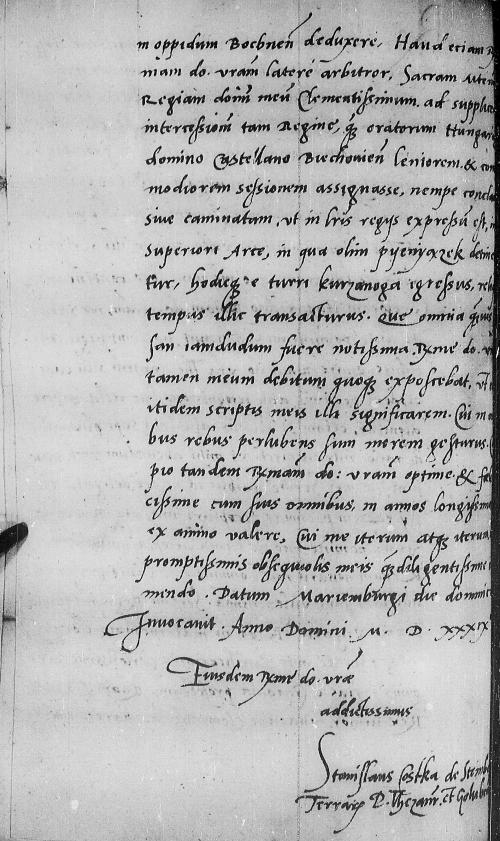 in oppidum Bochneñ deduxere. Haud eciam R
mam do. vram̃ latere arbitror, Sacram Mtem
Regiam dom̃ meũ Clementissimum, ad supplices
intercessioñ tam Regine, q̃ oratorum Hungar
domino Castellano Biechovieñ leniorem & com
modiorem sessionem assignasse, nempe concla
sive caminatam, ut in lris regijs expressũ est, in
superiori Arce, in qua olim pijenyązek detine
tur, hodieq; e turri kurzanoga egressus, reli
tempus illic transacturus. Que omnia q̃vis
san iamdudum fuere notissima Rxme do. v
tamen meum debitum quoq; exposcebat, ut
itidem scriptis meis illi significarem. Cui in o
bus rebus perlubens sum morem gesturus.
pio tandem Rxmam̃ do: vram̃ optime & feli
cissime cum suis omnibus, in annos longissimos
ex animo valere, Cui me iterum atq; iterum
promptissimis obsequiolis meis q̃diligentissime
mendo. Datum Mariemburgi die dominico
Invocavit. Anno Domini M. D. XXXIX
Eiusdem Rxme do. vrae
addictissimus
Stanislaus Costka de Stemb
Terrar P. Thezaur. et Golub